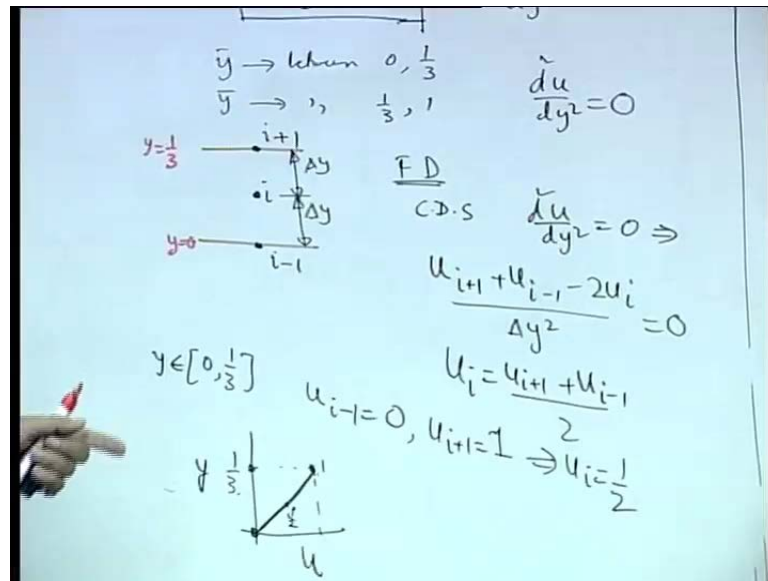 ȳ → 0, 1/3
ȳ → ,, 1/3, 1
d²u/dy² = 0
y=1/3
i+1
Δy
i
Δy
y=0
i-1
F D
C.D.S
d²u/dy² = 0 ⇒
(u_{i+1} + u_{i-1} - 2u_i)/Δy² = 0
u_i = (u_{i+1} + u_{i-1})/2
y∈[0, 1/3]
u_{i-1} = 0, u_{i+1} = 1 ⇒ u_i = 1/2
y 1/3
1
1/2
u